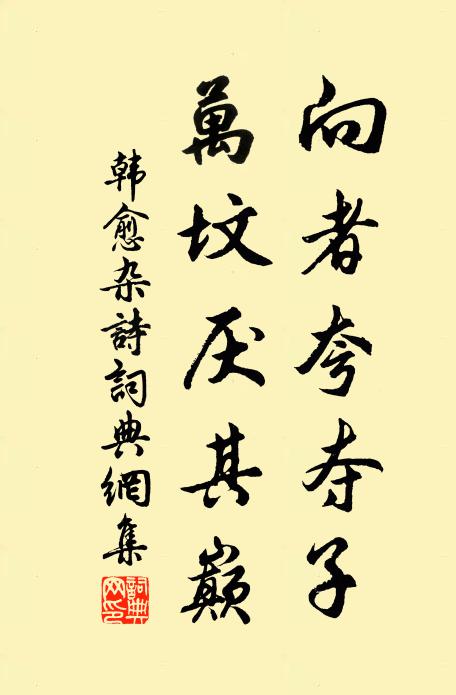 向者夸夺子
萬坟厌其巅
韩愈杂詩詞典網集
詞典网印